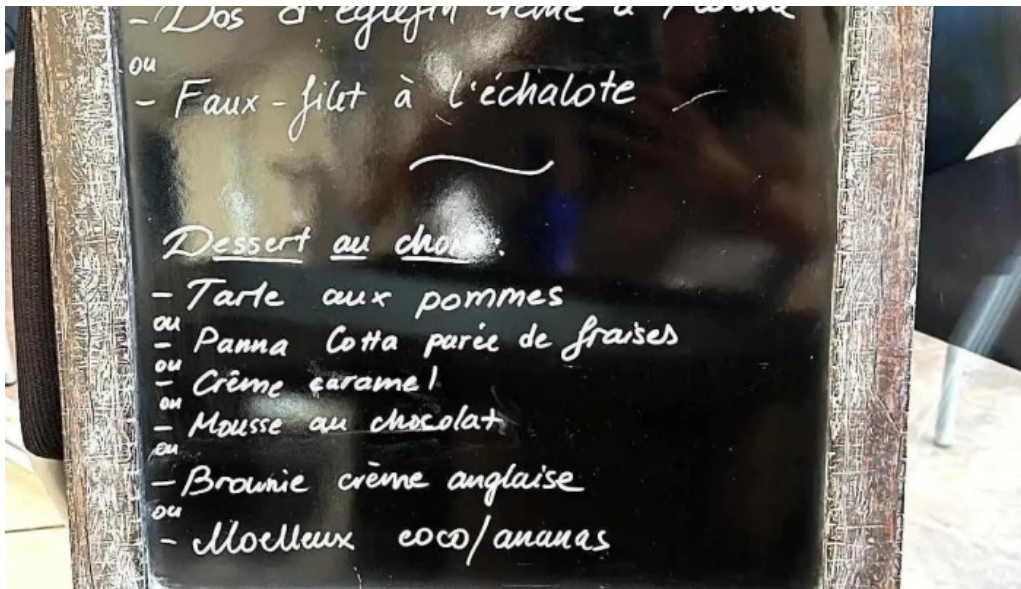 - Dos d'églefin crème à
ou
- Faux-filet à l'échalote
Dessert au choix :
- Tarte aux pommes
ou
- Panna Cotta parée de fraises
ou
- Crême caramel
ou
- Mousse au chocolat
ou
- Brownie crème anglaise
ou
- Moelleux coco/ananas